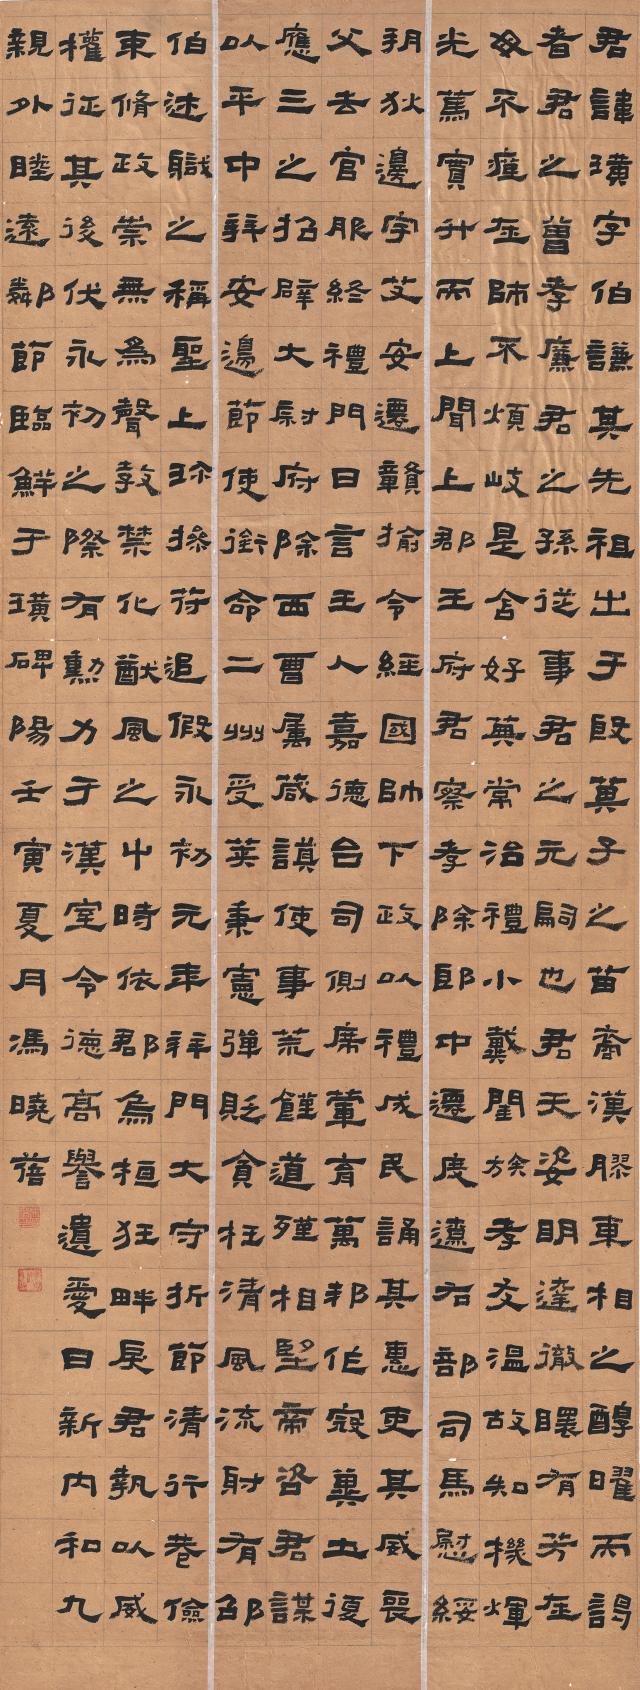 君諱璜字伯謙其先祖出于殷箕子之苗裔漢膠東相之醇曜而謁
者君之曾孝廉君之孫從事君之元嗣也君天姿明達徹瞡有芳在
母不瘽在師不煩岐是含好英常治禮小戴閨族孝友温故知機煇
光篤實升而上聞上郡王府君察孝除郎中遷度遼右部司馬慰綏
朔狄邊宇艾安遷贛揄令經國帥下政以禮成民誦其惠吏其威喪
父去官服終禮門日言王人嘉德台司側席輩育萬邦伯寇冀土復
應三之招辟大尉府除西曹属葴謨使事荒饉道殣相望帝咨君謀
以平中辭安邊節使銜命二州受莢秉憲彈貶貪枉清風流射有邵
伯述職之稱聖上珍操符追假永初元年辭門大守折節清行恭儉
東脩政崇無為聲敦禁化猷風之中時依郡烏桓狂畔戾君執以威
權征其後伏永初之際有勳力于漢室令德高譽遺愛日新内和九
親外睦遠鄰節臨鮮于璜碑陽壬寅夏月馮曉蓓